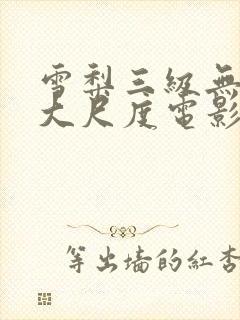 雪梨三級無
大尺度電影
等出墙的紅杏